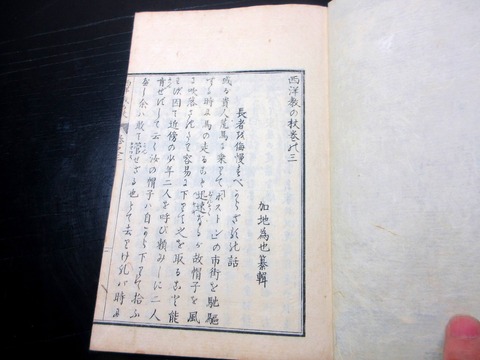 西洋教の杖巻の三
加地為也纂輯
長者を侮慢すべからざるの話
或る貴人尾馬に乗りてボストンの市街を馳駆
する時に馬の走ること迅速なるが故帽子を風
に吹落されて容易に下りて之を取ること能
はず因て近傍の少年二人を呼び頼みしに二人
肯ぜずして云く汝の帽子ハ自から下りて拾ふ
べし余ハ敢て管せざる也とて去りけれバ時に